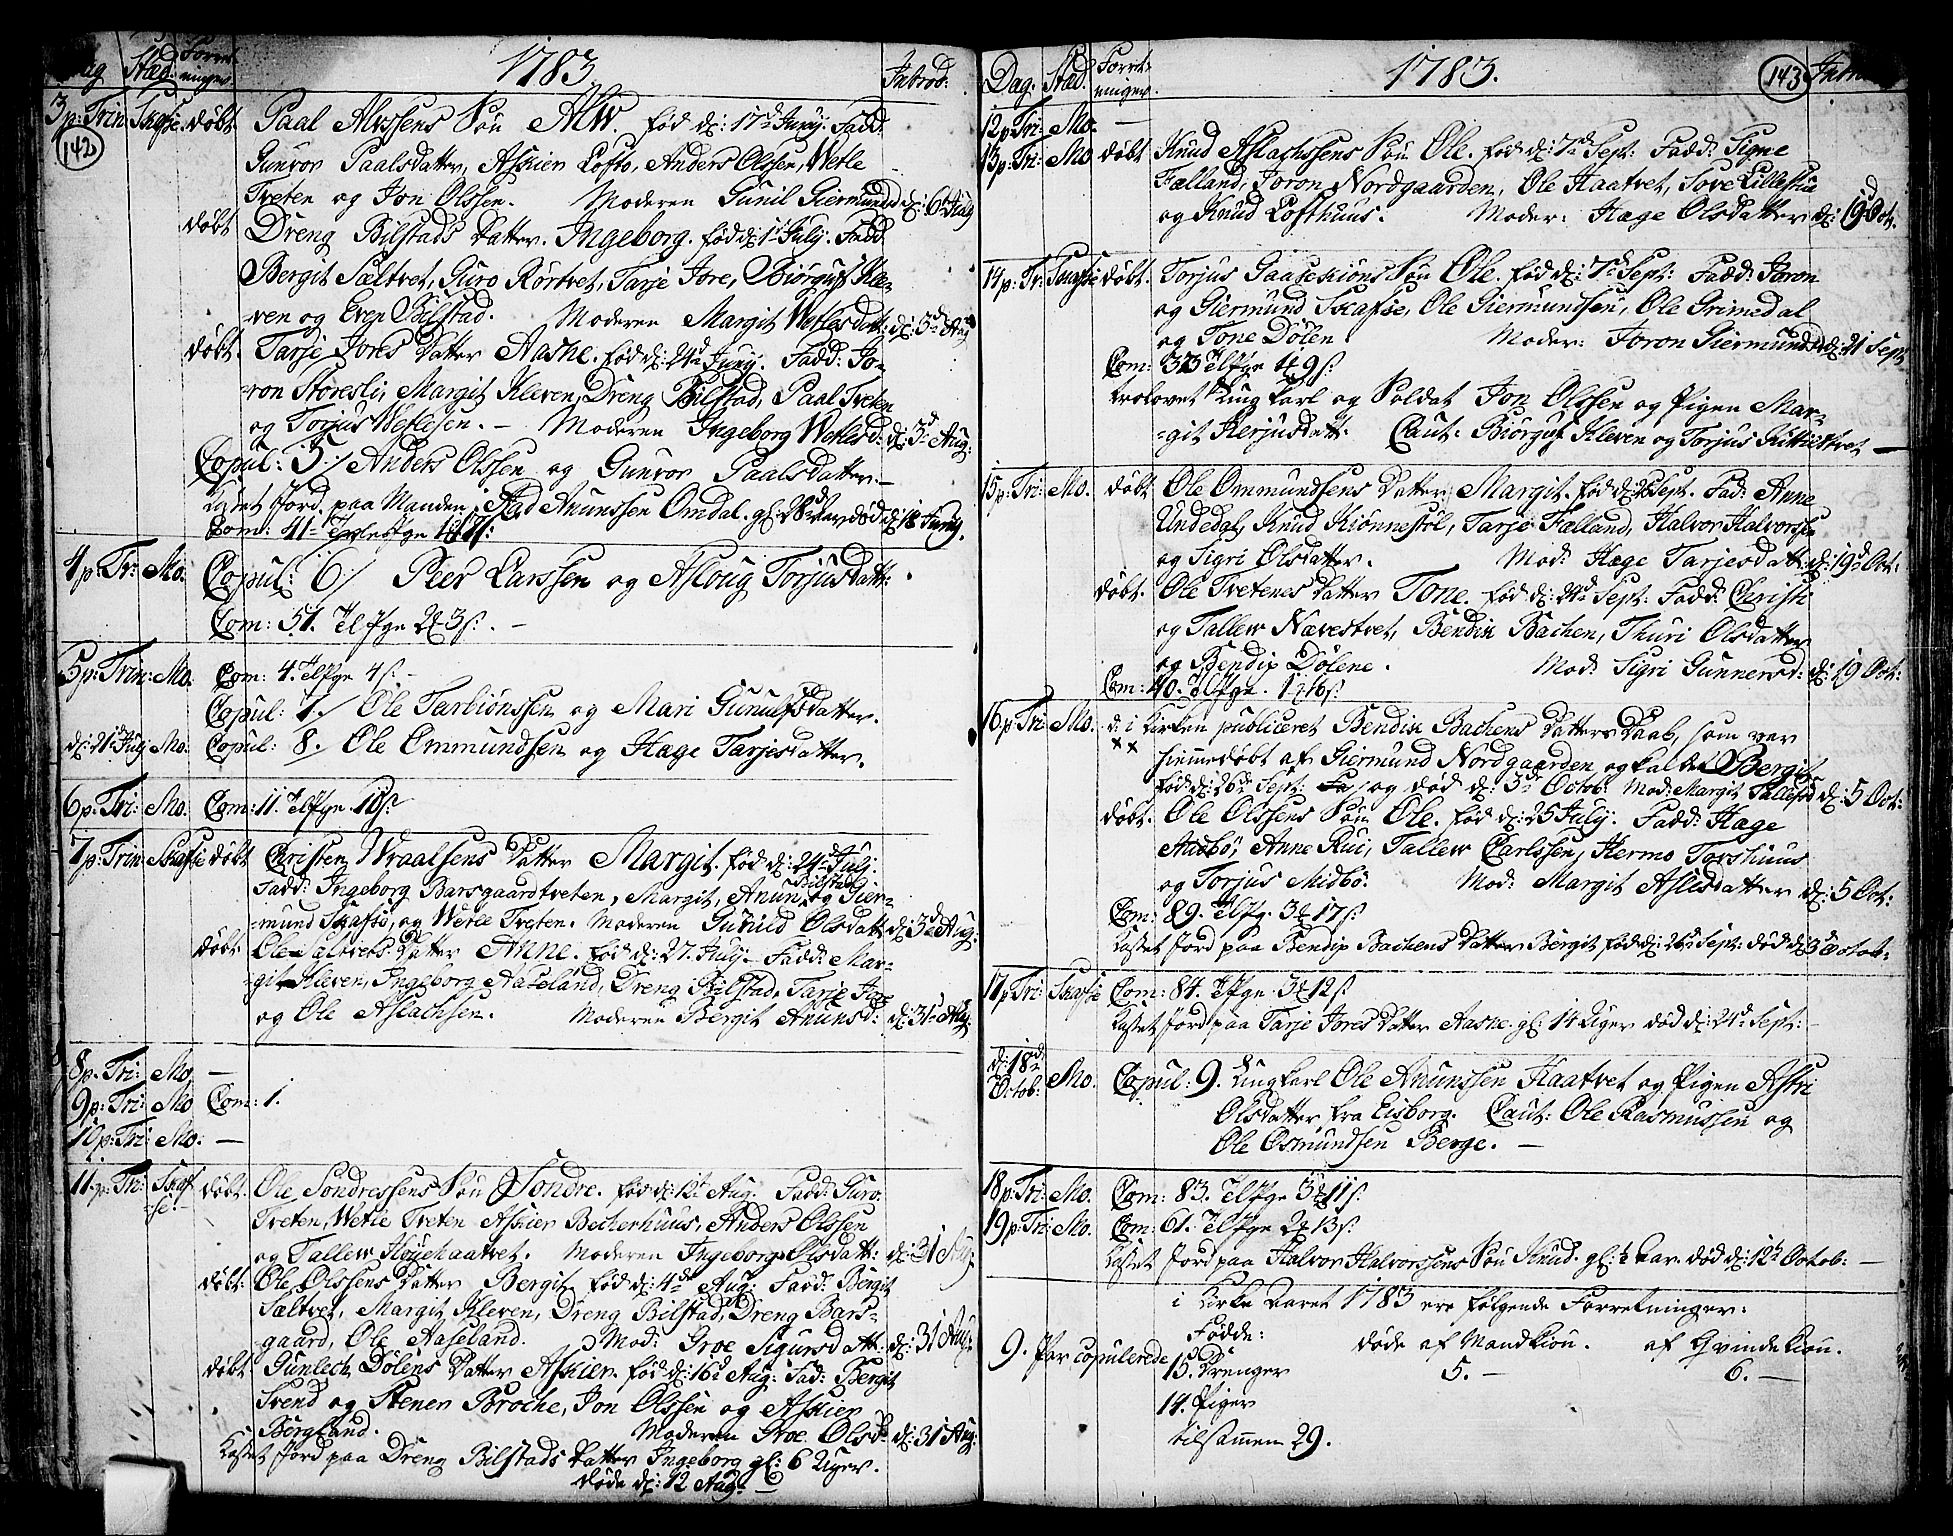 Dag Stæd. Forret-
ninger 1783. Introd:
142
3 p: Trin: Skafse døbt Paal Alvssens Søn Alw. fød d: 17de Junij. Fadd:
Gunvor Paalsdatter, Askier Lofto, Anders Olssen, Wetle
Treten og Jon Olssen. Moderen Gunil Giermundsd d: 6 Aug
døbt Dreng Bilstads Datter. Ingeborg. fød d: 1 July. Fadd
Bergit Sæltvet, Guro Rørtvet, Tarje Jore, Biørguf Kle-
ven og Even Bilstad. Moderen Margit Wetlesdatt: d: 3de Aug
døbt. Tarje Jores Datter Aasne. fød d: 24de Junij. Fadd: Jo-
ron Storesli, Margit Kleven, Dreng Bilstad, Paal Treten
og Torjus Wetlesen. – Moderen Ingeborg Wetlesd: d: 3de Aug:
Copul: 5 / Anders Olssen og Gunvor Paalsdatter. –
Kastet Jord paa Manden Anunssen Omdal. gl: 28 Aar død d: 18 Junij.
Com: 41
4 p: Tr: Mo. Copul: 6 / Peer Larssen og Asloug Torjusdatt:
Com: 51. Tellfge 2 3 s. –
5 p: Trin: Mo. Com: 4. Tellfge 4 s. –
Copul: 7. / Ole Tarbiønssen og Mari Gunulfsdatter.
d: 21 July Mo. Copul: 8. / Ole Ommundsen og Hæge Tarjesdatter.
6 p: Tri: Mo. Com: 11. Tellfge 10 s:
7 p: Trin: Skafse døbt Christen Wraalsens Datter Margit. fød d: 24de July:
Fadd: Ingeborg Barsgaardtreten, Margit, Anun Bilstad og Gier-
mund Skafse, og Wetle Treten. Moderen Gunild Olsdatt: d: 3de Aug:
døbt. Ole Sæltvets Datter Anne. fød d: 27. July. Fadd: Mar-
git Kleven, Ingeborg Aaseland, Dreng Bilstad, Tarje Jore
og Ole Aslachsen. Moderen Bergit Anunsd: d: 31 Aug:
8 p. Tri: Mo. –
9 p: Tri: Mo Com: 1.
10 p: Tri: Mo: –
11. p: Tri: Skaf-
se. døbt. Ole Sondressens Søn Sondre. fød d: 12t Aug. Fadd: Guro
Treten, Wetle Treten Askier Becherhuus, Anders Olssen
og Tallew Høyehaatvet. Moderen Ingeborg Olsdatt: d: 31 Aug
døbt: Ole Olssens Datter Bergit fød d: 4de Aug: Fadd: Bergit
Sæltvet, Margit Kleven, Dreng Bilstad, Dreng Bars-
gaard, Ole Aaseland. Mod: Groe Sigursdatt: d: 31 Aug:
døbt Gunlech Dølens Datter Askier fød d: 16 Aug: Fad: Bergit
Svend og Stener Broche, Jon Olssen og Askier
Børgland. Moderen Groe Olsd: d: 31 Aug:
Kastet Jord paa Dreng Bilstads Datter Ingeborg gl: 6 Uger.
døde d: 12 Aug: –
Dag. Stæd. Forret-
ninger. 1783. 143
12 p: Tri: Mo. –
13 p: Tri: Mo døbt Knud Aslachssens Søn Ole. fød d: 7de Sept: Fadd: Signe
Fælland, Joron Nordgaarden, Ole Haatvet, Sove Lillestue
og Knud Lofthuus. Moder: Hæge Olsdatter d: 19 Oct.
14 p: Tr: Skafse døbt. Torjus Gaasekiøns Søn Ole. fød d: 7de Sept: Fadd: Joron
og Giermund Skafse, Ole Giermundsen, Ole Grimedal
og Tone Dølen. Moder: Joron Giermundsd: d: 21 Sept:
Com: 33 Tellfge 4 9 s:
trolovet Ungkarl og Soldat Jon Olssen og Pigen Mar-
git Kerjusdatt: Caut: Biørguf Kleven og Torjus –
15 p: Tri: Mo. døbt Ole Ommundsens Datter Margit. fød d: 26 Sept. Fad: Anne
Undedal, Knud Kiønnestøl, Tarje Fælland, Halvor Halvorssen
og Sigri Olsdatter. Mod: Hæge Tarjesdatt: d: 19de Oct:
døbt. Ole Tretenes Datter Tone. fød d: 24de Sept: Fadd: Christi
og Tallew Nævestvet, Bendix Bachen, Thuri Olsdatter
og Bendix Dølene. Mod: Sigri Gunnersd: d: 19 Oct:
Com: 40. Tellfge. 1 16 s:
16 p: Tri: Mo. d: i Kirken publiceret Bendix Bachens Datters Daab, som var
hiemmedøbt af Giermund Nordgaarden og kaldet Bergit
fød d: 26de Sept: og død d: 3de Octob: Mod: Margit Tallefsd d: 5 Oct:
døbt. Ole Olssens Søn Ole. fød d: 25 July. Fadd: Hæge
Midbø, Anne Rui, Tallew Carlssen, Hermo Torshuus
og Torjus Midbø. Mod: Margit Aslesdatter d: 5 Oct:
Com: 89. Tellfg. 3 17 s:
Kastet Jord paa Bendix Bachens Datter Bergit fød d: 26de Sept: død d: 3de Octob:
17 p: Tri: Skafse Com: 84. Tellfge 3 12 s.
Kastet Jord paa Tarje Jores Datter Aasne. gl: 14 Uger død d: 21de Sept: –
d: 18de
Octob: Mo. Copul: 9. Ungkarl Ole Anunssen Haatvet og Pigen Astri
Olsdatter fra Eisborg. Caut: Ole Rasmussen og
Ole Osmundsen Berge. –
18 p: Tri: Mo. Com: 83. Tellfge 3 11 s:
19 p: Tri: Mo. Com: 61. Tellfge 2 13 s.
Kastet Jord paa Halvor Halvorssens Søn Knud. gl: ½ Aar. død d: 12te Octob: –
i Kirke Aaret 1783 ere følgende Forretninger:
9. Par copulerede Fødde: døde af Mandkiøn. af Qvindekiøn.
15. Drenger 5. – 6. –
14. Piger
tilsammen 29.